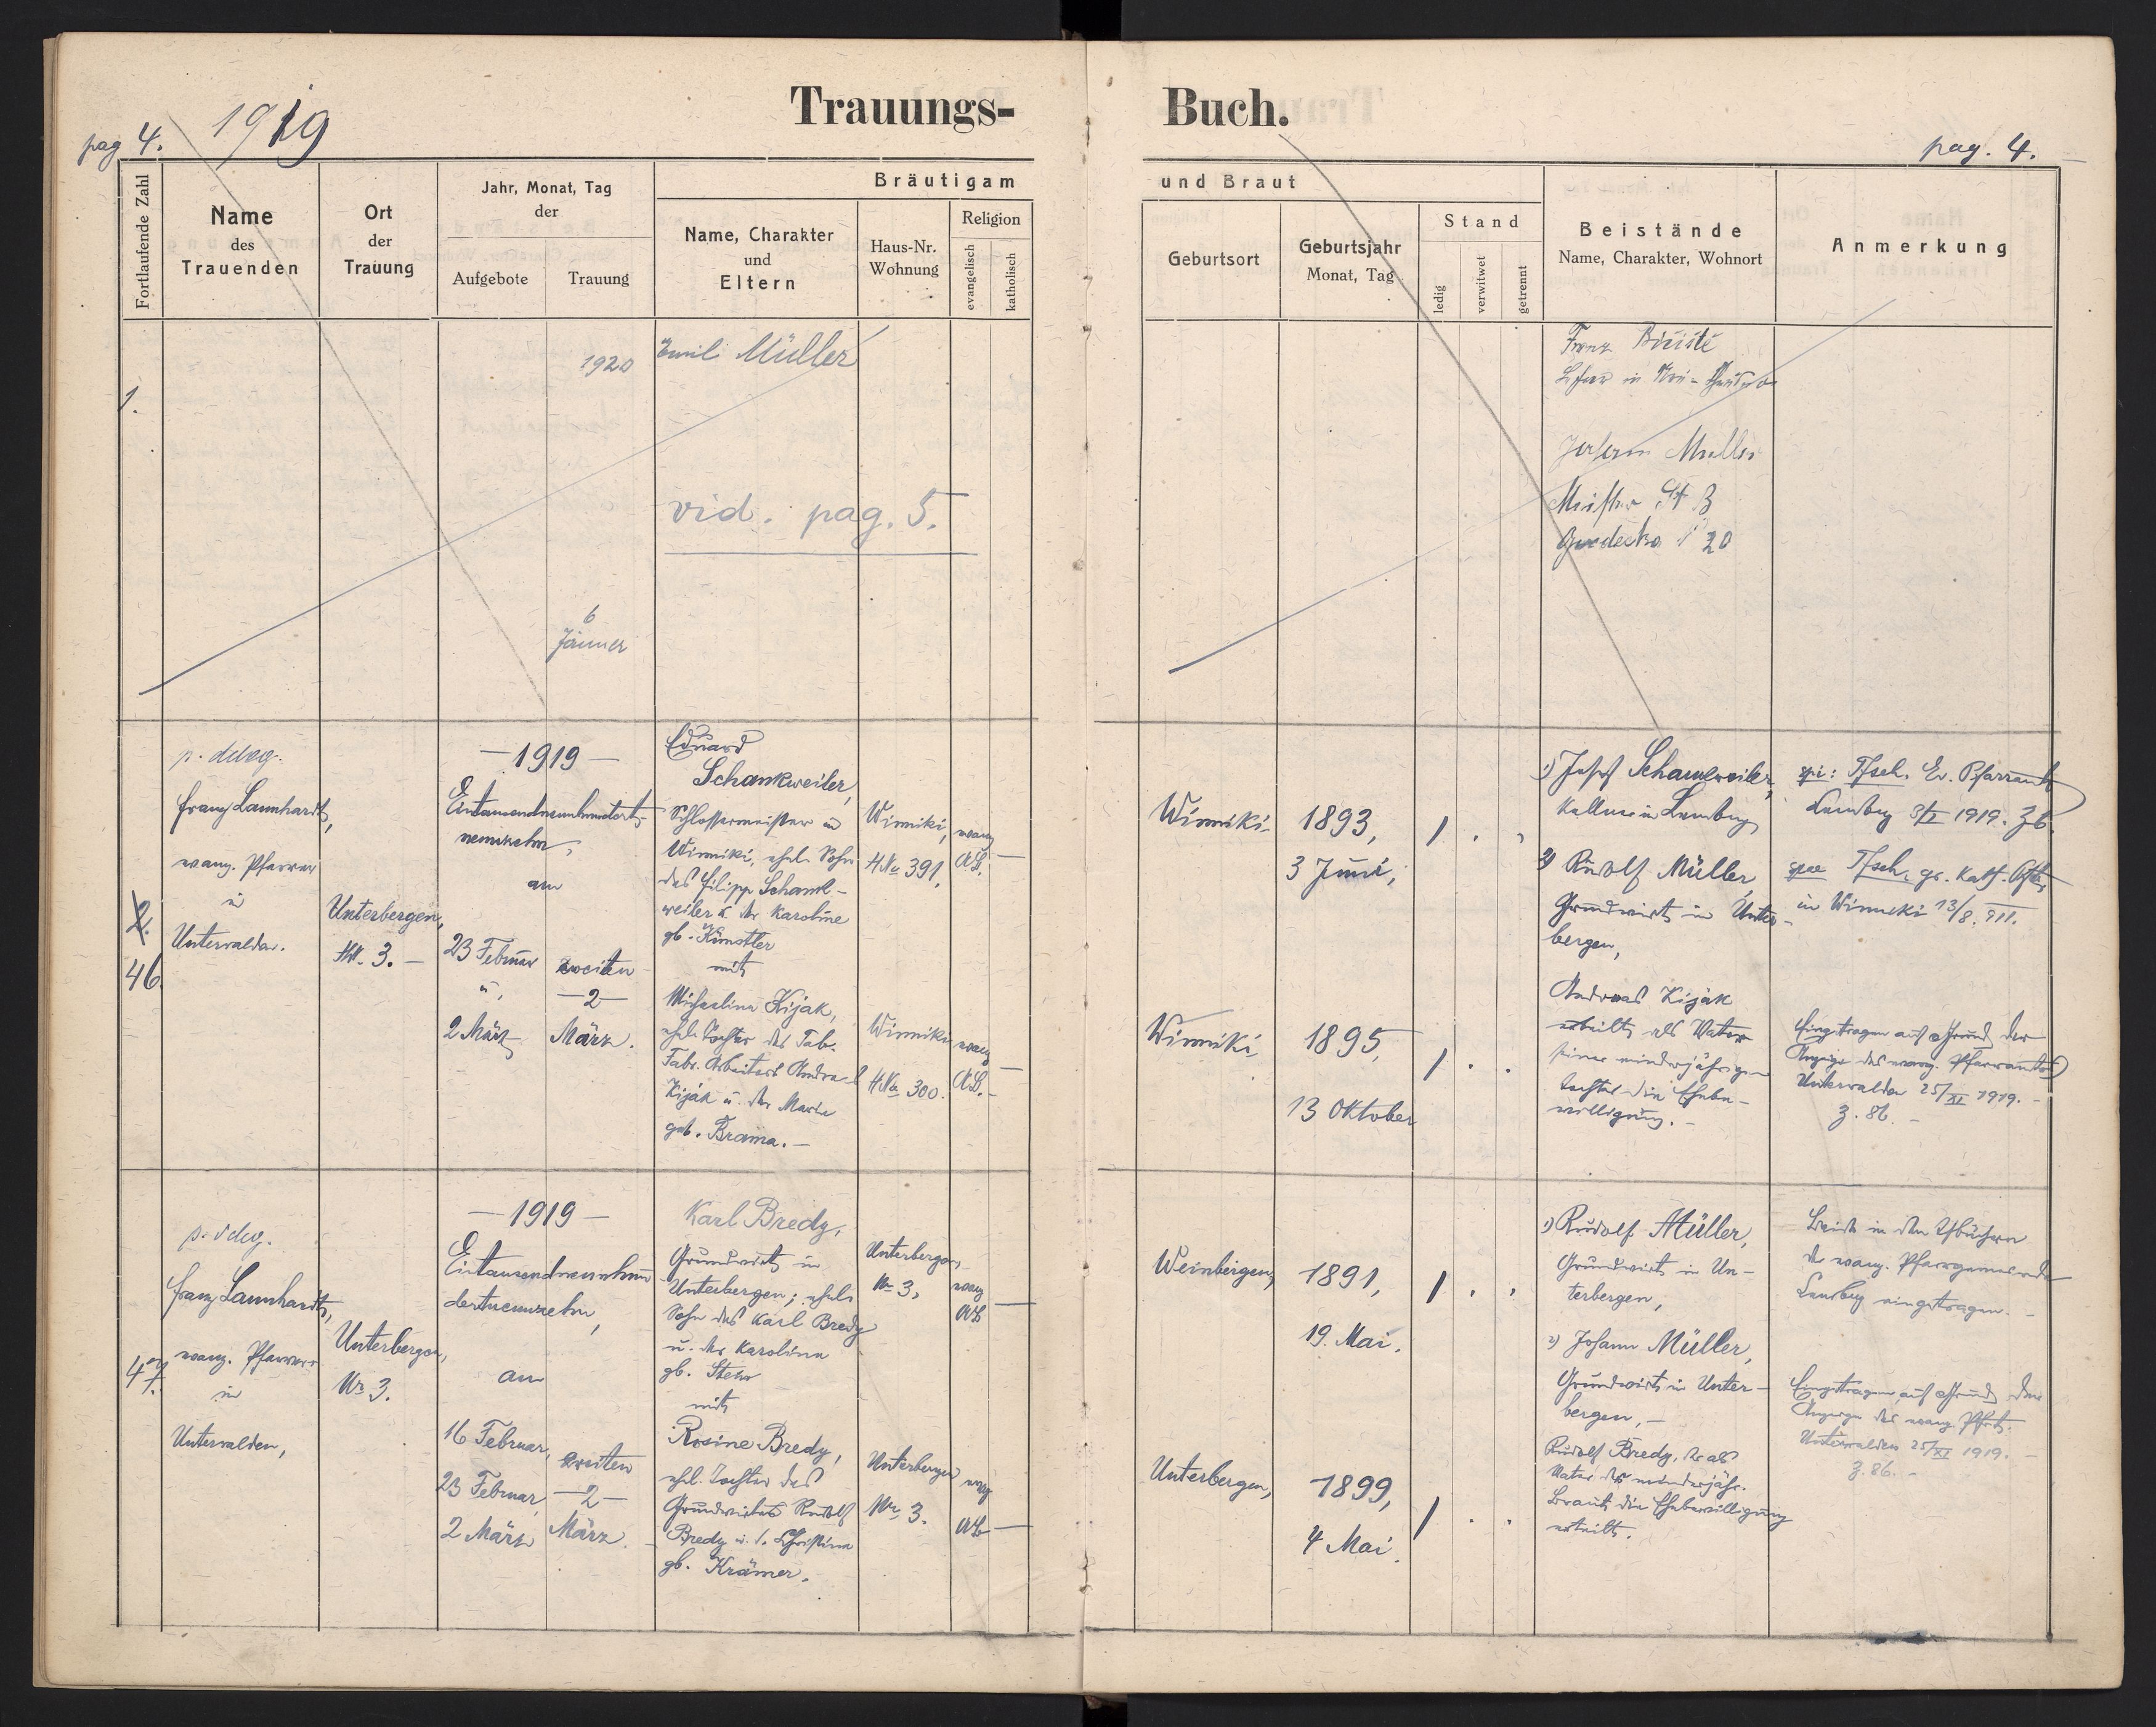 Trauungs-
Buch.
pag 4.
1919
pag. 4.
Fortlaufende Zahl
Name
des
Trauenden
Ort
der
Trauung
Jahr, Monat, Tag
der
Aufgebote
Trauung
Bräutigam
Name, Charakter
und
Eltern
Haus-Nr.
Wohnung
Religion
evangelisch
katholisch
und Braut
Geburtsort
Geburtsjahr
Monat, Tag
Stand
ledig
verwitwet
getrennt
Beistände
Name, Charakter, Wohnort
Anmerkung
1.
1920
6
Jänner
Emil Müller
vid. pag. 5.
Franz
Johann Müller
20
2.
46
p. deleg.
Franz Launhardt,
evang. Pfarrer
in
Unterwalden.
Unterbergen,
Nr. 3. —
— 1919 —
Eintausendneunhundert-
neunzehn,
am
23 Februar
u.
2 März
zweiten
— 2 —
März.
Eduard
Schankweiler,
Schlossermeister in
Winniki, ehel. Sohn
des Filipp Schank-
weiler u. der Karoline
gb. Künstler
mit
Michaeline Kijak,
ehel. Tochter des Tab.
Fabr. Arbeiters Andreas
Kijak u. der Maria
geb. Brama. —
Winniki,
HNo 391,
evang
AB.
—
Winniki
HNo 300.
evang
AB. —
—
Winniki
1893,
3 Juni,
/ . ,
Winniki
1895,
13 Oktober
/ . .
1) Josef Schankweiler,
Kellner in Lemberg
2) Rudolf Müller,
Grundwirt in Unter-
bergen,
Andreas Kijak
erteilt als Vater
seiner minderjährigen
Tochter die Ehebe-
willigung. —
Tfsch. Ev. Pfarramt
Lemberg 3/X 1919. Z 6.
Tfsch. gr. kath.
in Winniki 13/8. 911.
Eingetragen auf Grund der
Anzeige des evang. Pfarramtes
Unterwalden 25/XI 1919. —
Z. 86. —
47.
p. deleg.
Franz Launhardt,
evang. Pfarrer
in
Unterwalden,
Unterbergen,
Nr 3.
— 1919 —
Eintausendneunhun-
dertneunzehn,
am
16 Februar,
23 Februar,
2 März
zweiten
— 2 —
März.
Karl Bredy,
Grundwirt in
Unterbergen; ehel.
Sohn des Karl Bredy
u. der Karolina
gb. Stehr
mit
Rosine Bredy,
ehel. Tochter des
Grundwirtes Rudolf
Bredy u. d. Christina
gb. Krämer.
Unterbergen,
Nr 3,
evang
AB
—
Unterbergen
Nr. 3.
evang
AB —
Weinbergen,
1891,
19. Mai.
/ . ,
Unterbergen,
1899,
4 Mai.
/ . .
1) Rudolf Müller,
Grundwirt in Un-
terbergen,
2) Johann Müller,
Grundwirt in Unter-
bergen, —
Rudolf Bredy, der als
Vater der minderjähr.
Braut die Ehebewilligung
erteilt.
Beide in den Tfbüchern
der evang. Pfarrgemeinde
Lemberg eingetragen. —
Eingetragen auf Grund der
Anzeige des evang. Pfarr.
Unterwalden 25/XI 1919. —
Z. 86. —